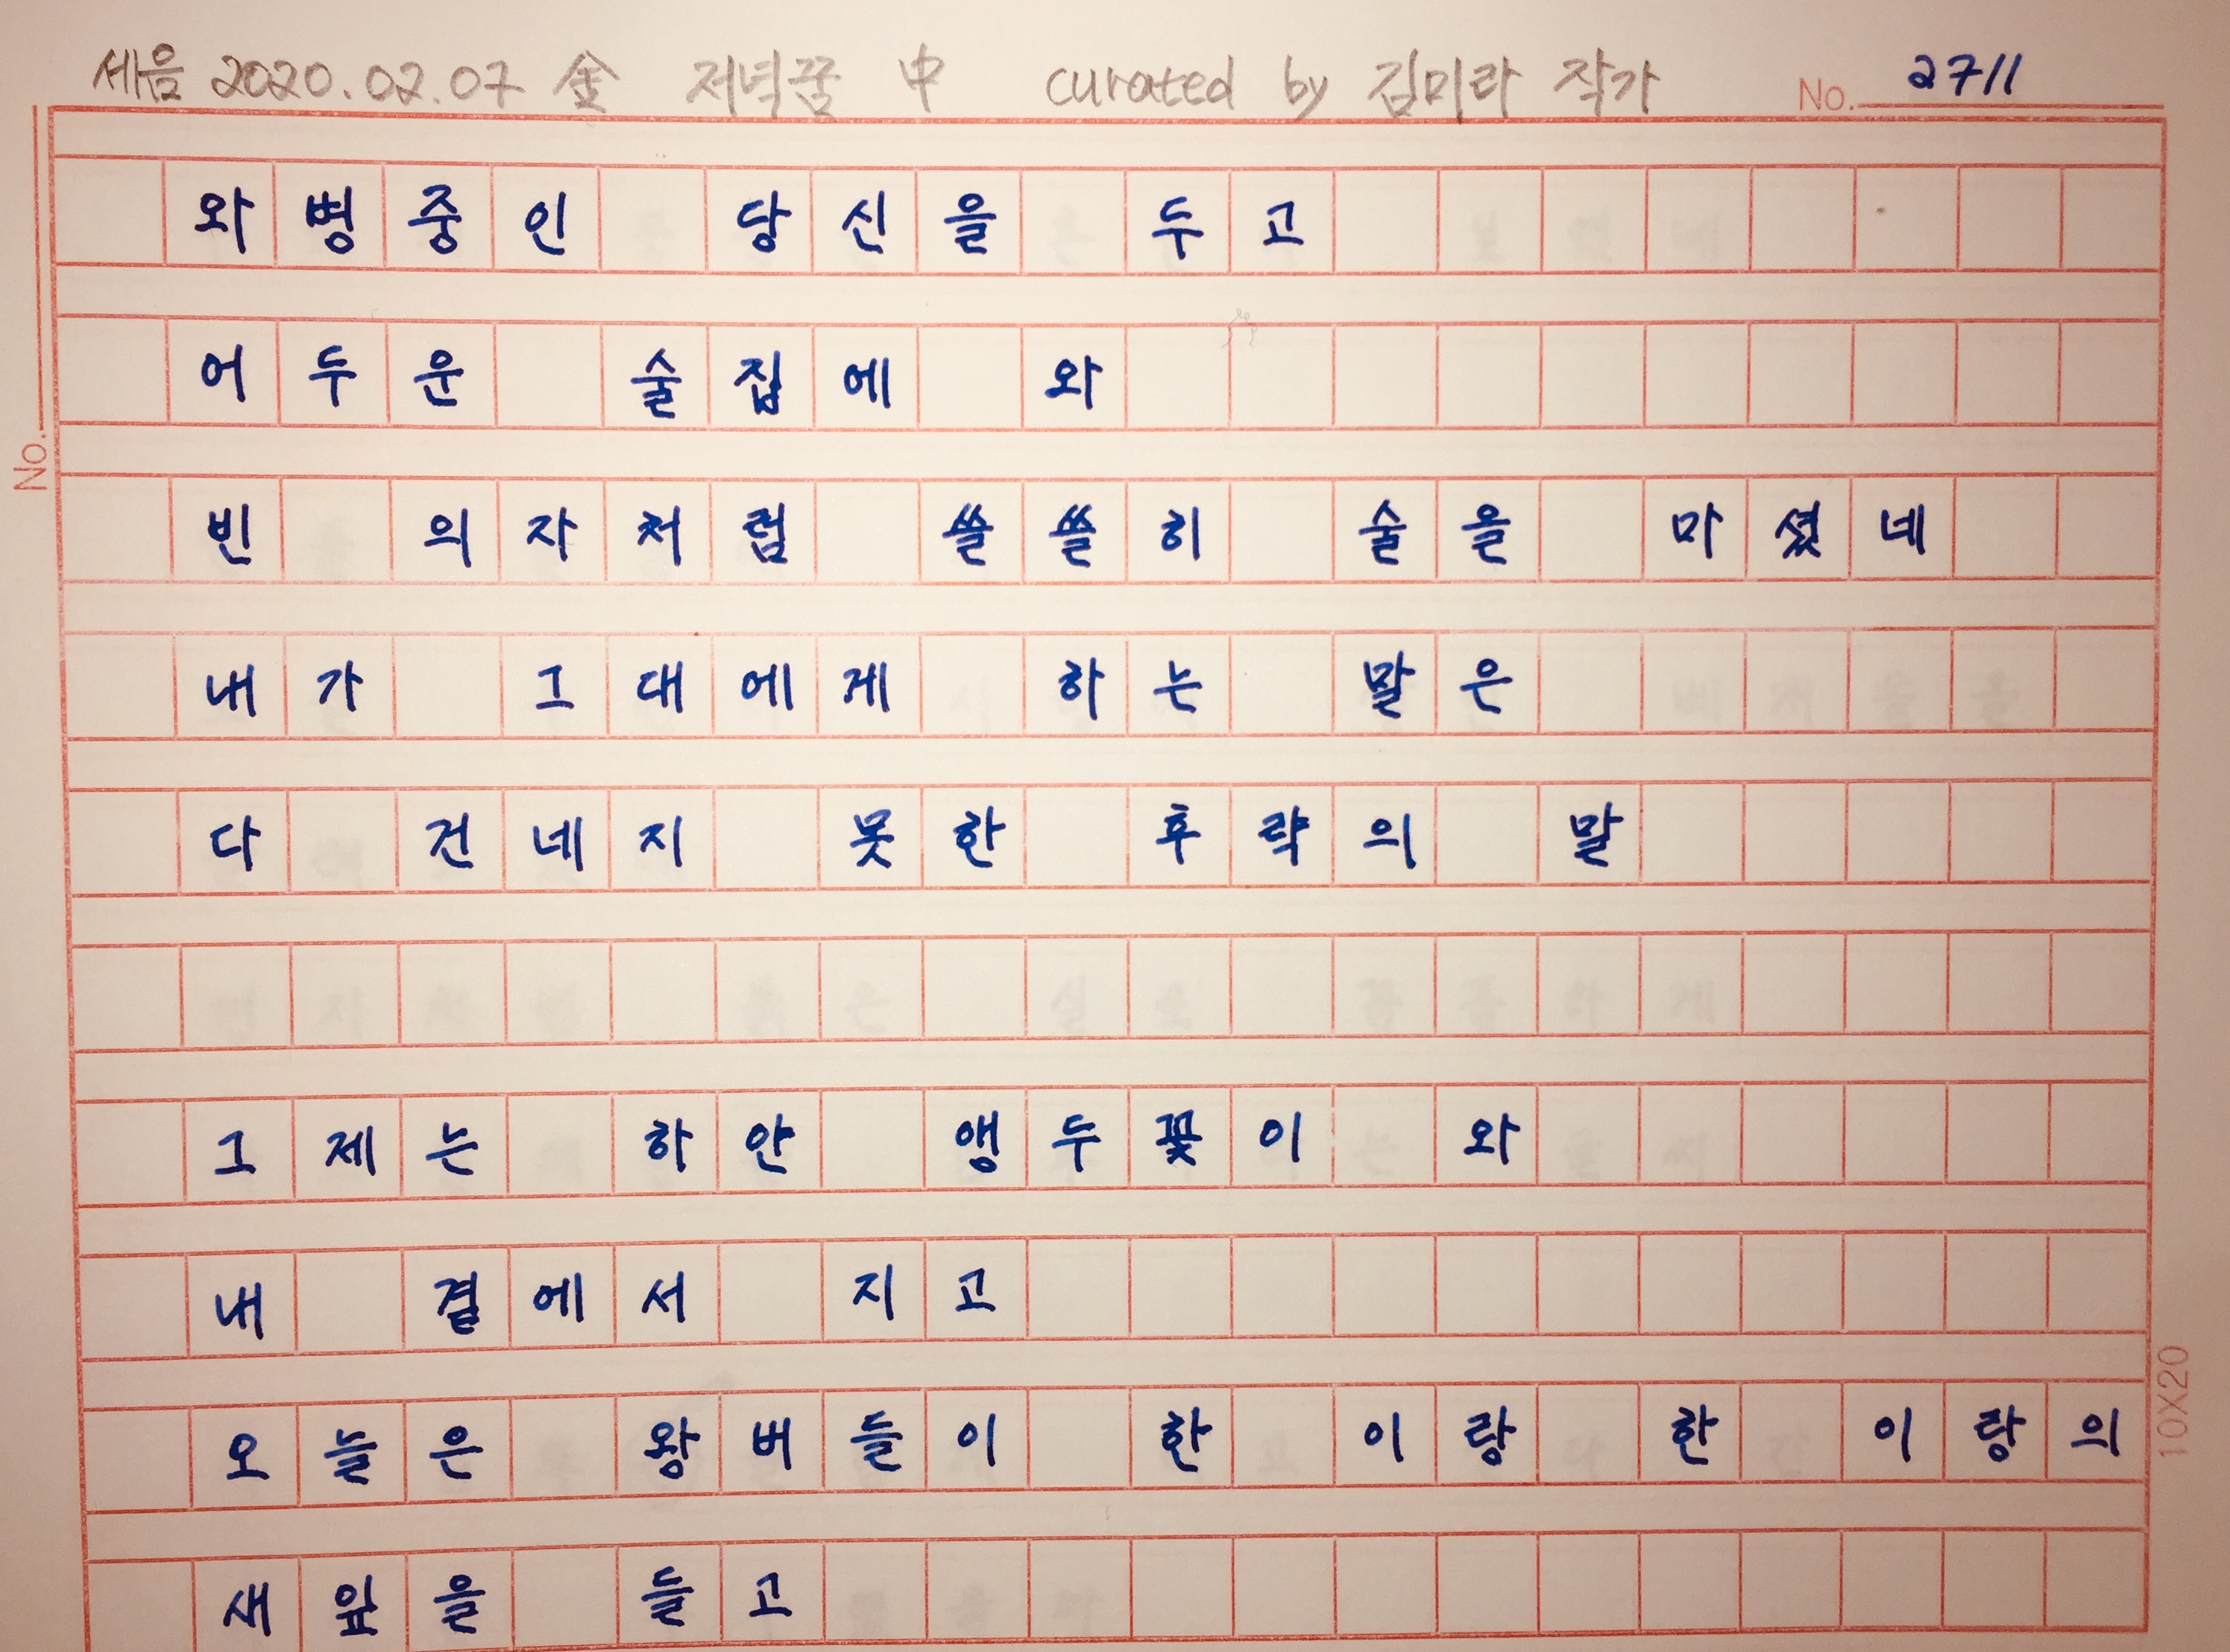 세음 2020.02.07 金 저녁꿈 中 curated by 김미라 작가 No. 2711
와병중인 당신을 두고
어두운 술집에 와
빈 의자처럼 쓸쓸히 술을 마셨네
내가 그대에게 하는 말은
다 건네지 못한 후략의 말
그제는 하얀 앵두꽃이 와
내 곁에서 지고
오늘은 왕버들이 한 이랑 한 이랑의
새 잎을 들고
No.
10X20